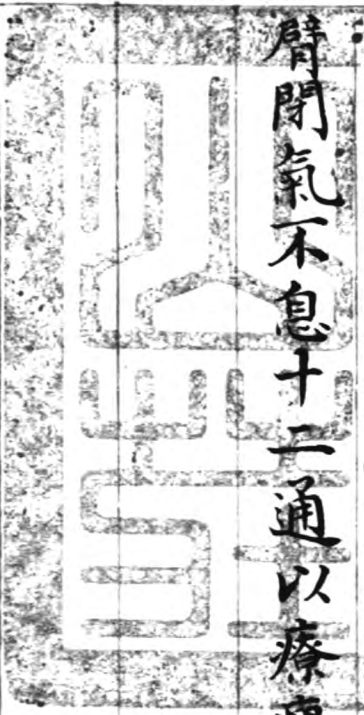 臂閉氣不息十二通以療